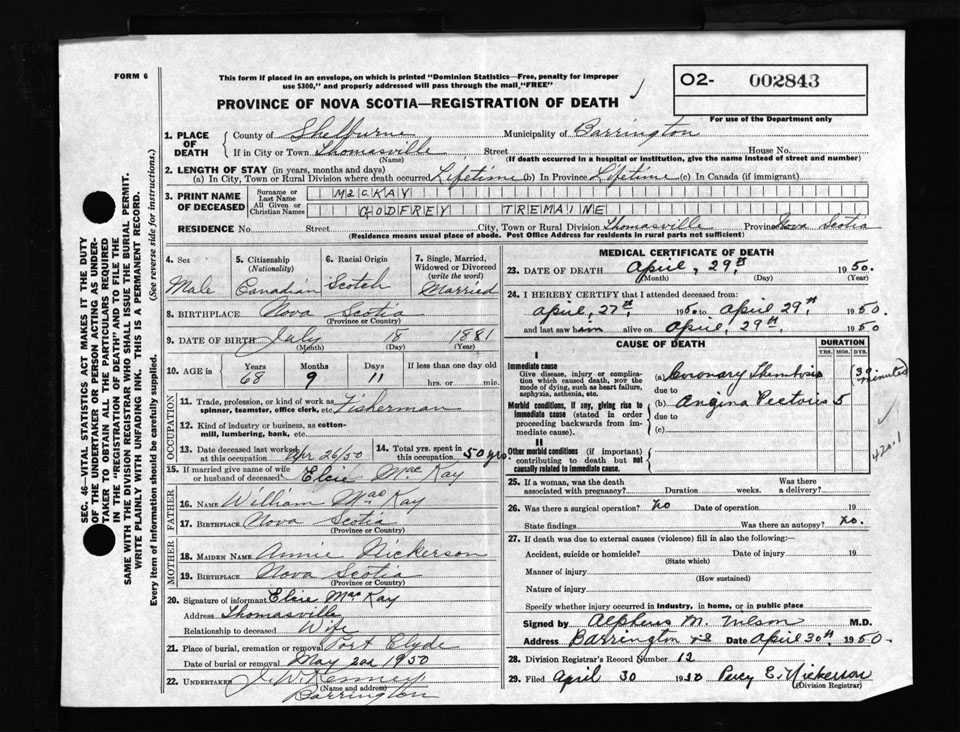 FORM 6
This form if placed in an envelope, on which is printed "Dominion Statistics—Free, penalty for improper
use $300," and properly addressed will pass through the mail "FREE"
PROVINCE OF NOVA SCOTIA—REGISTRATION OF DEATH
02- 002843
For use of the Department only
SEC. 46—VITAL STATISTICS ACT MAKES IT THE DUTY
OF THE UNDERTAKER OR PERSON ACTING AS UNDER-
TAKER TO OBTAIN ALL THE PARTICULARS REQUIRED
IN THE "REGISTRATION OF DEATH" AND TO FILE THE
SAME WITH THE DIVISION REGISTRAR WHO SHALL ISSUE THE BURIAL PERMIT.
WRITE PLAINLY WITH UNFADING INK. THIS IS A PERMANENT RECORD.
Every item of information should be carefully supplied. (See reverse side for instructions.)
1. PLACE OF DEATH
County of Shelburne Municipality of Barrington
If in City or Town Thomasville Street House No.
(Name) (If death occurred in a hospital or institution, give the name instead of street and number)
2. LENGTH OF STAY (in years, months and days)
(a) In City, Town or Rural Division where death occurred Lifetime (b) In Province Lifetime (c) In Canada (if immigrant)
3. PRINT NAME OF DECEASED
Surname or Last Name MacKAY
All Given or Christian Names GODFREY TREMAINE
RESIDENCE No. Street City, Town or Rural Division Thomasville Province Nova Scotia
(Residence means usual place of abode. Post Office Address for residents in rural parts not sufficient)
4. Sex Male
5. Citizenship (Nationality) Canadian
6. Racial Origin Scotch
7. Single, Married, Widowed or Divorced (write the word) Married
8. BIRTHPLACE Nova Scotia
(Province or Country)
9. DATE OF BIRTH July 18 1881
(Month) (Day) (Year)
10. AGE in Years 68 Months 9 Days 11 If less than one day old hrs. or min.
OCCUPATION
11. Trade, profession or kind of work as spinner, teamster, office clerk, etc. Fisherman
12. Kind of industry or business, as cotton-mill, lumbering, bank, etc.
13. Date deceased last worked at this occupation Apr 26/50
14. Total yrs. spent in this occupation 50 yrs.
15. If married give name of wife or husband of deceased Elsie M. MacKay
FATHER
16. NAME William MacKay
17. BIRTHPLACE Nova Scotia
(Province or Country)
MOTHER
18. MAIDEN NAME Annie Nickerson
19. BIRTHPLACE Nova Scotia
(Province or Country)
20. Signature of informant Elsie MacKay
Address Thomasville
Relationship to deceased Wife
21. Place of burial, cremation or removal Port Clyde
Date of burial or removal May 2nd 1950
22. UNDERTAKER J. W. Kenney
(Name and address)
Barrington
MEDICAL CERTIFICATE OF DEATH
23. DATE OF DEATH April, 29th, 1950.
(Month) (Day) (Year)
24. I HEREBY CERTIFY that I attended deceased from:
April, 27th, 1950 to April 29th, 1950
and last saw him alive on April, 29th, 1950
CAUSE OF DEATH
DURATION
YRS. MOS. DYS.
I
Immediate cause
Give disease, injury or complication which caused death, not the mode of dying, such as heart failure, asphyxia, asthenia, etc.
(a) Coronary Thrombosis 30 minutes
due to
Morbid conditions, if any, giving rise to immediate cause (stated in order proceeding backwards from immediate cause).
(b) Angina Pectoris 5
due to
(c)
II
Other morbid conditions (if important) contributing to death but not causally related to immediate cause.
420.1
25. If a woman, was the death associated with pregnancy? Duration weeks. Was there a delivery?
26. Was there a surgical operation? No Date of operation 19
State findings Was there an autopsy? No.
27. If death was due to external causes (violence) fill in also the following:—
Accident, suicide or homicide? Date of injury 19
(State which)
Manner of injury
(How sustained)
Nature of injury
Specify whether injury occurred in industry, in home, or in public place
Signed by Alpheus M. Wilson M.D.
Address Barrington N.S. Date April 30th 1950.
28. Division Registrar's Record Number 12
29. Filed April 30 1950 Percy E. Nickerson
(Division Registrar)